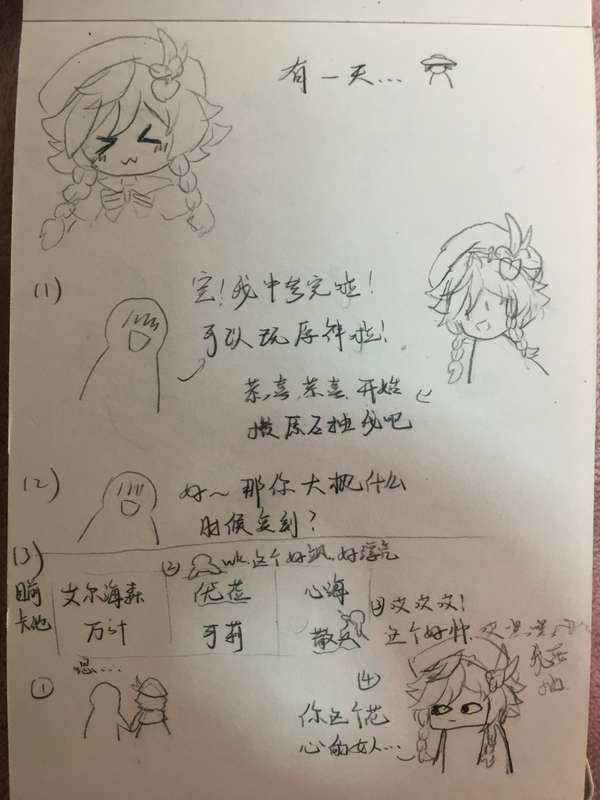 有一天...
(1)
完!我中考完啦!
可以玩原神啦!
恭喜,恭喜,开始
攒原石抽我吧
(2)
好~那你大概什么
时候复刻?
(3)
目前
卡池
艾尔海森
万叶
优菈
可莉
心海
散兵
② wk.这个好飒,好漂亮
③ 哎哎哎!
这个好帅,
① 恩....
④
你这个花
心的女人...